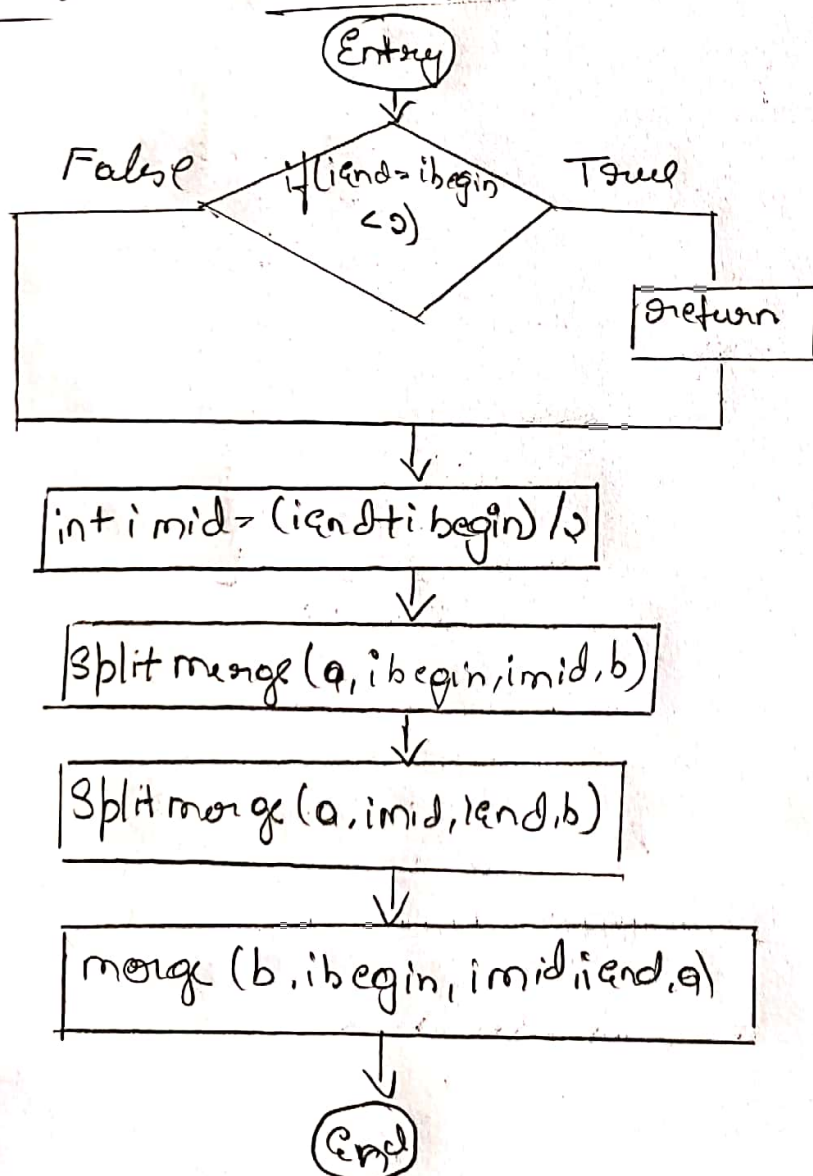 Entry
False
if(iend-ibegin
<2)
True
return
int imid=(iend+ibegin)/2
Splitmerge(a,ibegin,imid,b)
Splitmerge(a,imid,iend,b)
merge(b,ibegin,imid,iend,a)
End